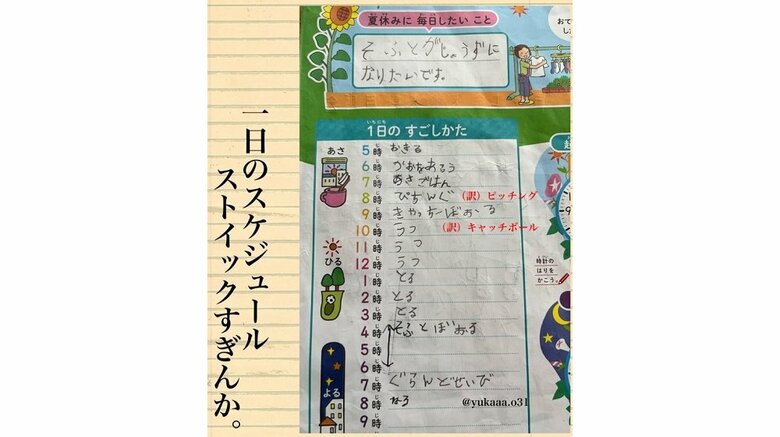 一日のスケジュール
ストイックすぎんか。
夏休みに 毎日したい こと
そふとがじょうずに
なりたいです。
いちにち
1日の すごしかた
あさ
5時 おきる
6時 かおをあらう
7時 あさごはん
8時 ぴちんぐ (訳) ピッチング
9時 きゃっちーぼおーる
10時 うつ (訳) キャッチボール
ひる
11時 うつ
12時 うつ
1時 とる
2時 とる
3時 とる
4時 そふとぼおる
5時
6時
よる
7時 ぐらんどせいび
8時 ねる @yukaaa.o31
9時
時計の
はりを
かこう。